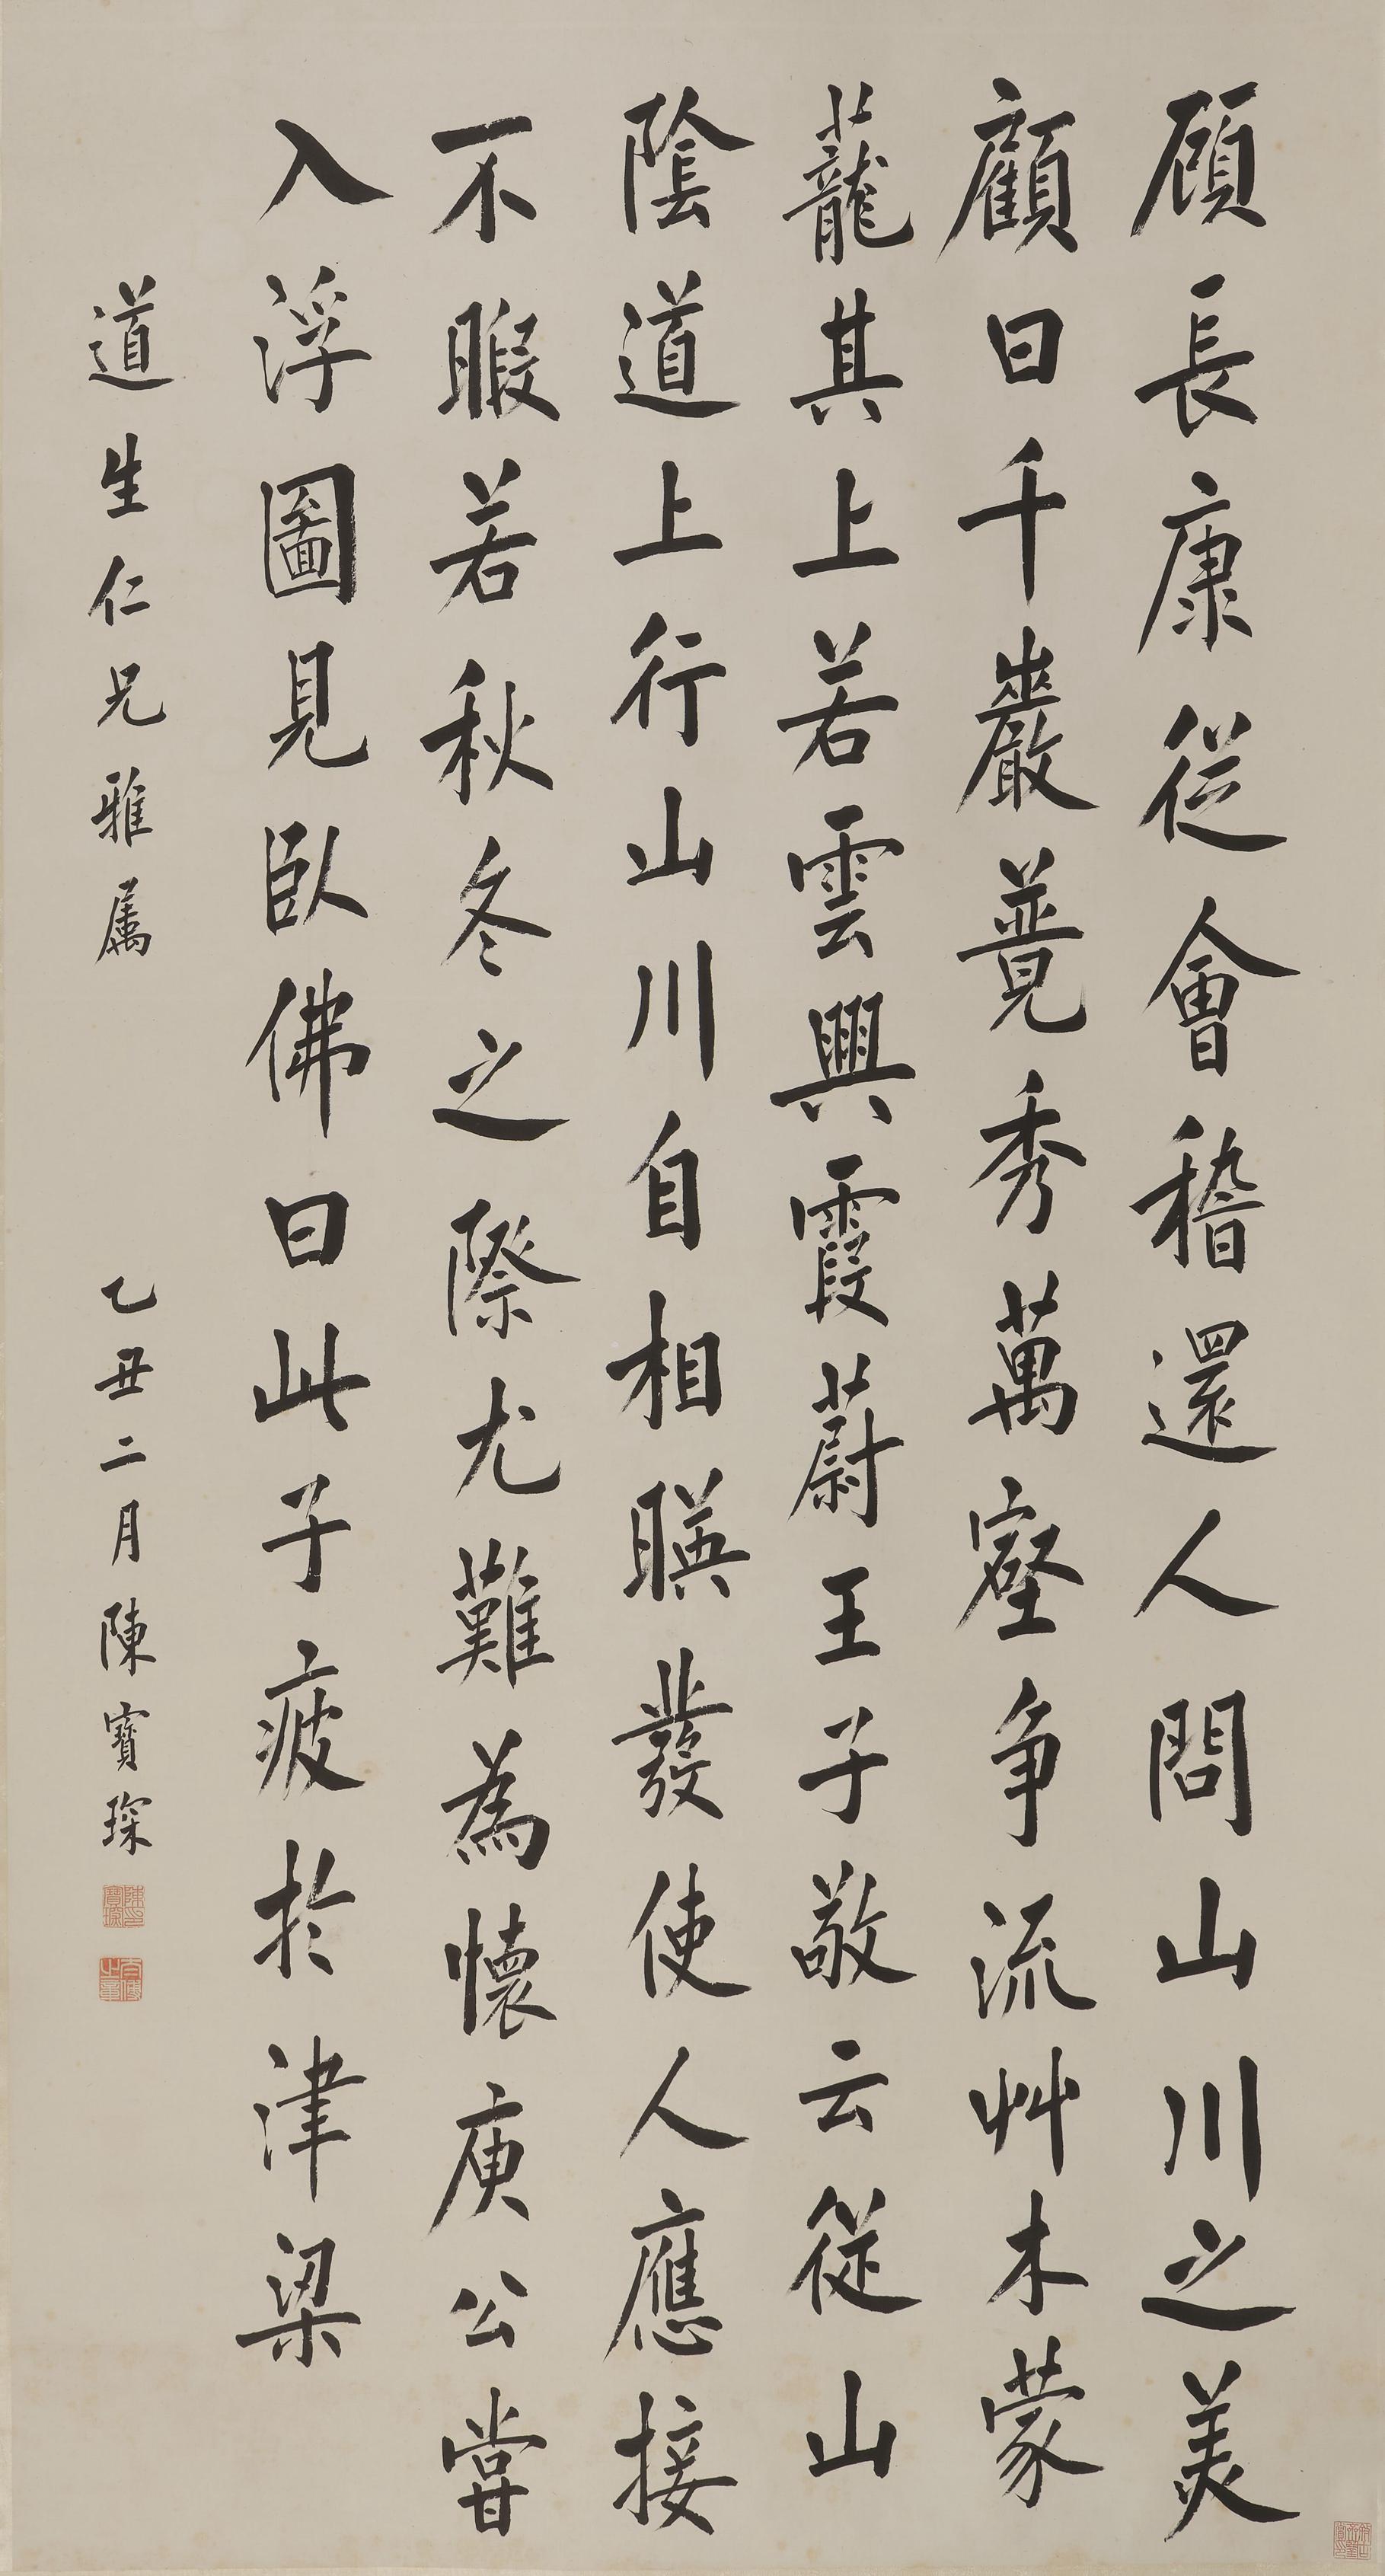 顧長康從會稽還人問山川之美
顧曰千巖競秀萬壑爭流艸木蒙
蘢其上若雲興霞蔚王子敬云從山
陰道上行山川自相暎發使人應接
不暇若秋冬之際尤難為懷庾公嘗
入浮圖見臥佛曰此子疲於津梁
道生仁兄雅屬
乙丑二月陳寶琛
陳寶琛印
太傅之章